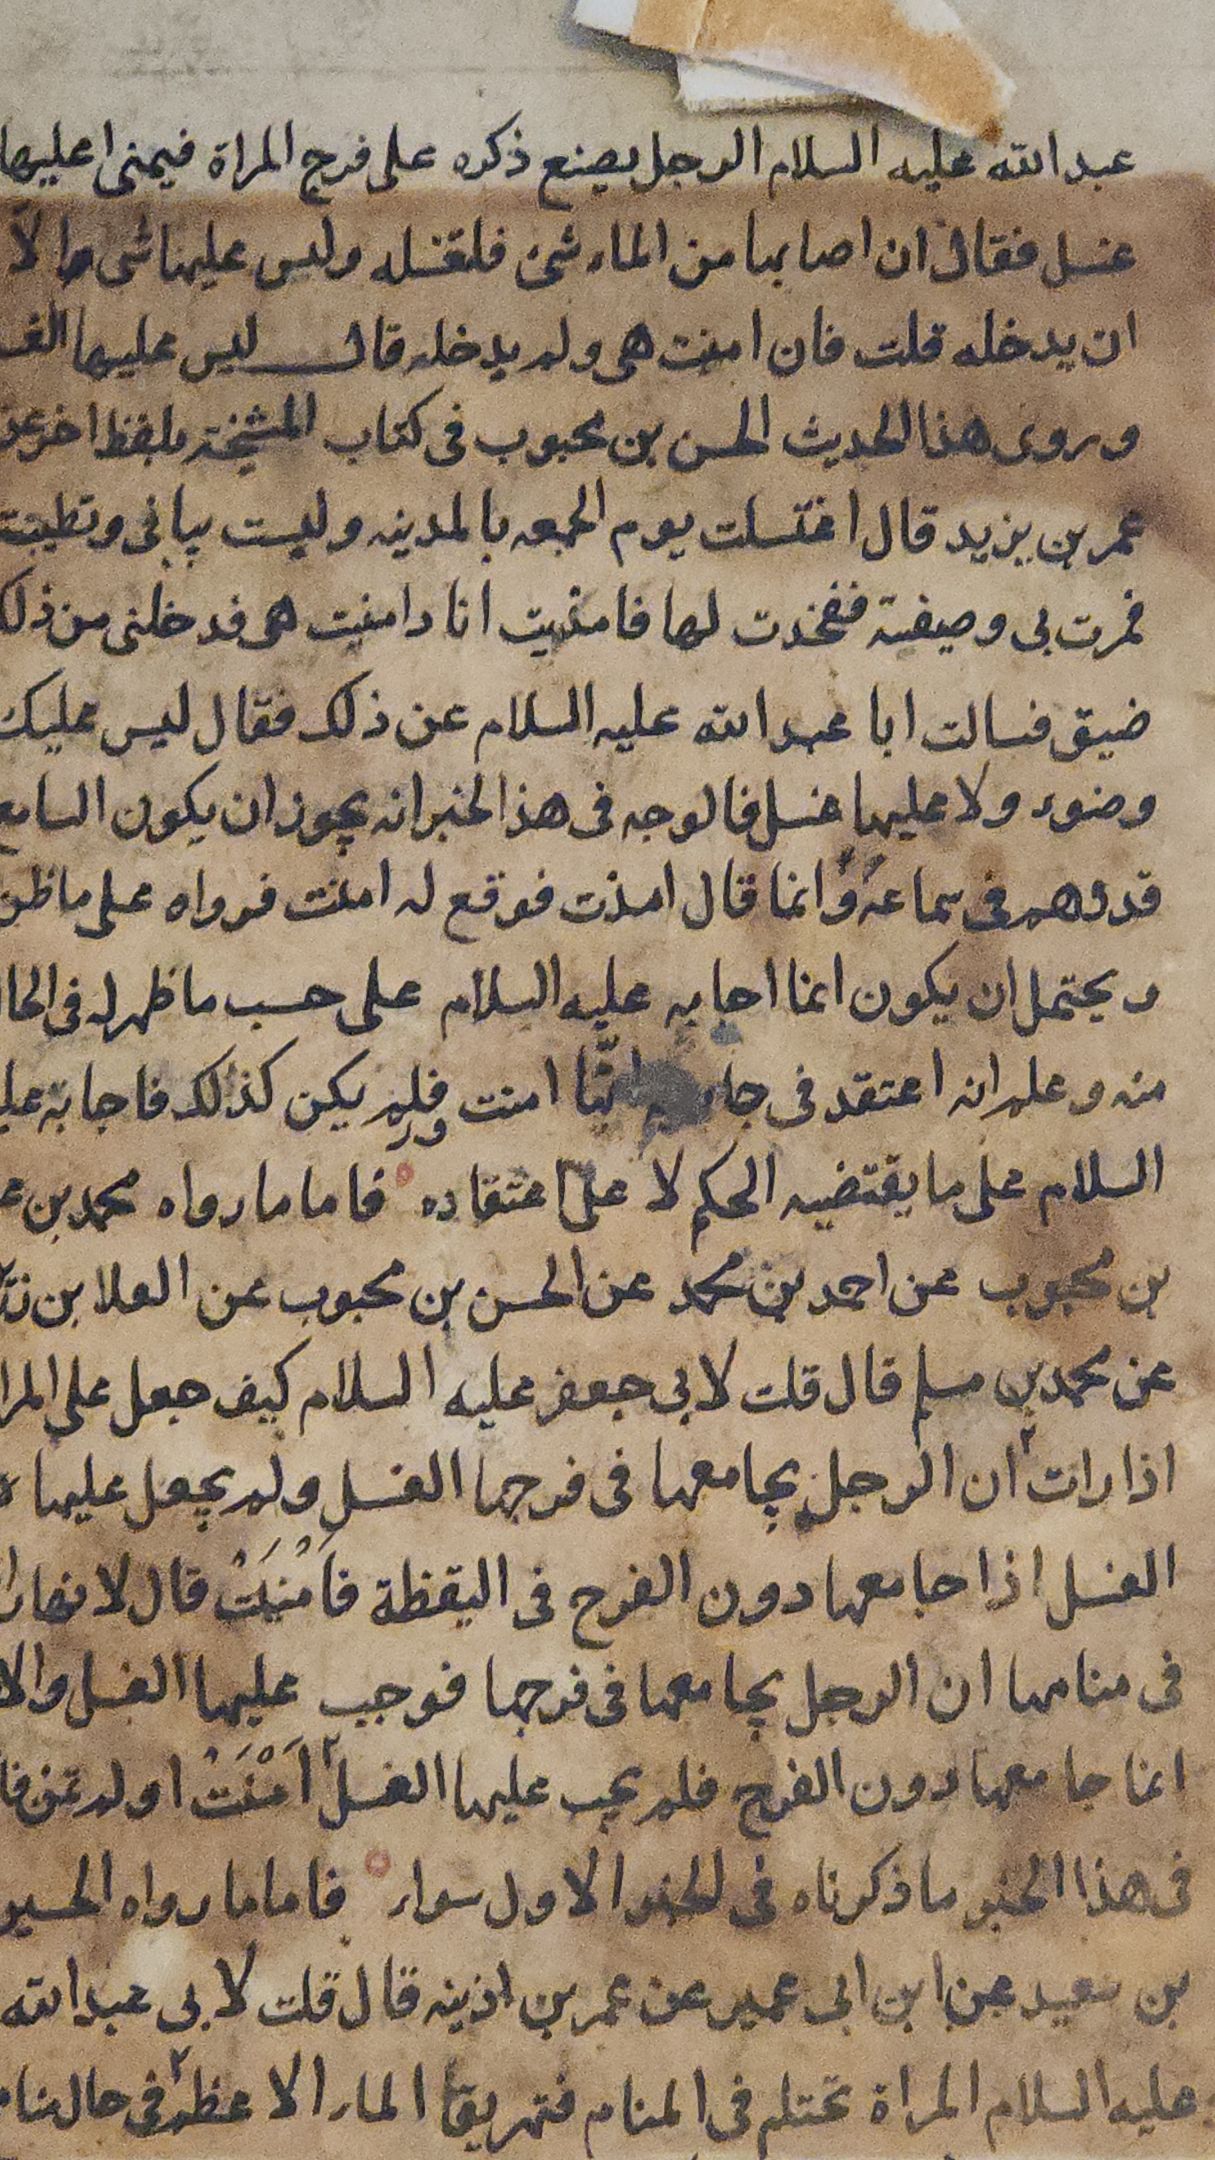 عبد الله عليه السلام الرجل يضع ذكره على فرج المراة فيمنى اعليها
غسل فقال ان اصابها من الماء شئ فلتغسله وليس عليها شى الا
ان يدخله قلت فان امنت هى ولم يدخله قال ليس عليها
وروى هذا الحديث الحسن بن محبوب فى كتاب المشيخة بلفظ اخر عن
عمر بن يزيد قال اغتسلت يوم الجمعه بالمدينه ولبست ثيابى وتطيبت
فمرت بى وصيفة ففخذت لها فامذيت انا وامنت هى فدخلنى من ذلك
ضيق فسالت ابا عبد الله عليه السلام عن ذلك فقال ليس عليك
وضوء ولا عليها غسل فالوجه فى هذا الخبر انه يجوز ان يكون السامع
قد وهم فى سماعه وانما قال امذت فوقع له امنت فرواه على ما ظن
ويحتمل ان يكون انما اجابه عليه السلام على حسب ما ظهر له فى الحال
منه وعلم انه اعتقد فى انها امنت ولم يكن كذلك فاجابه عليه
السلام على ما يقتضيه الحكم لا على اعتقاده فاما ما رواه محمد بن
بن محبوب عن احمد بن محمد عن الحسن بن محبوب عن العلا بن
عن محمد بن مسلم قال قلت لابى جعفر عليه السلام كيف جعل على المراة
اذا رات ان الرجل يجامعها فى فرجها الغسل ولم يجعل عليها
الغسل اذا جامعها دون الفرج فى اليقظة فامنت قال لانها رات
فى منامها ان الرجل يجامعها فى فرجها فوجب عليها الغسل والاخر
انما جامعها دون الفرج فلم يجب عليها الغسل امنت او لم تمن
فى هذا الخبر ما ذكرناه فى الخبر الاول سواء فاما ما رواه الحسين
بن سعيد عن ابن ابى عمير عن عمر بن اذينه قال قلت لابى عبد الله
عليه السلام المراة تحتلم فى المنام فتهريق الماء الاعظم فى حال منامها